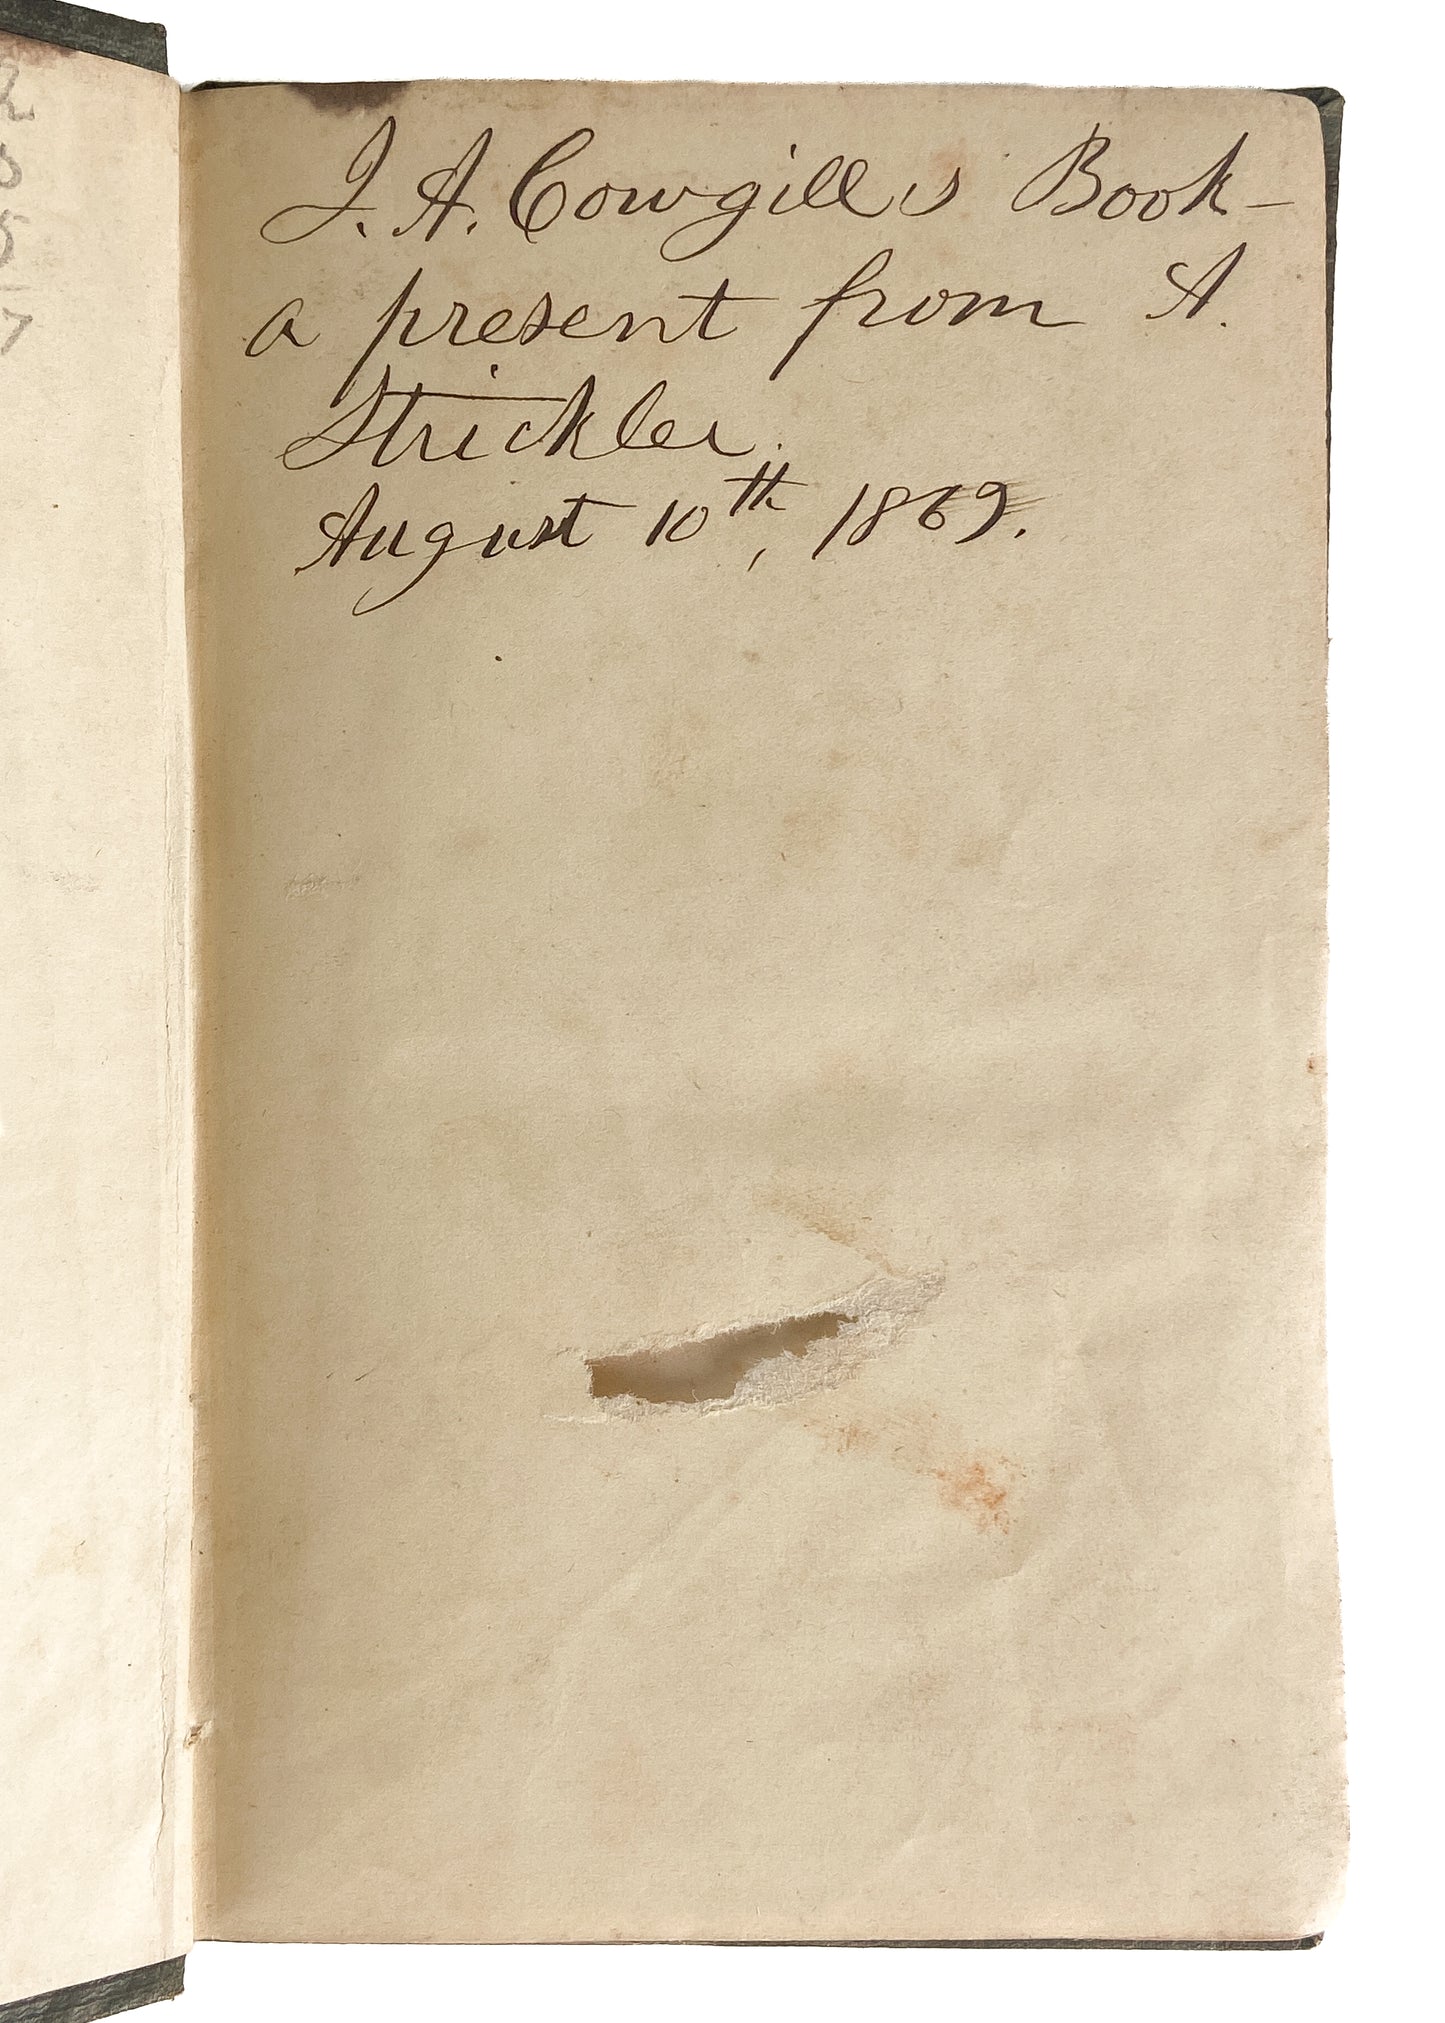 2
5
7
J. A. Cowgill's Book—
a present from A.
Strickler.
August 10th, 1869.